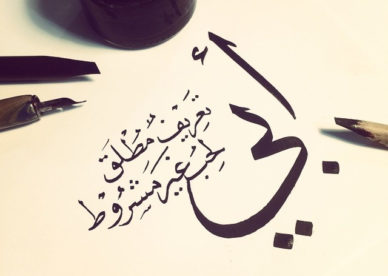 أبي
تعريف مُطْلَق
لِحُبٍّ غير مَشْرُوط